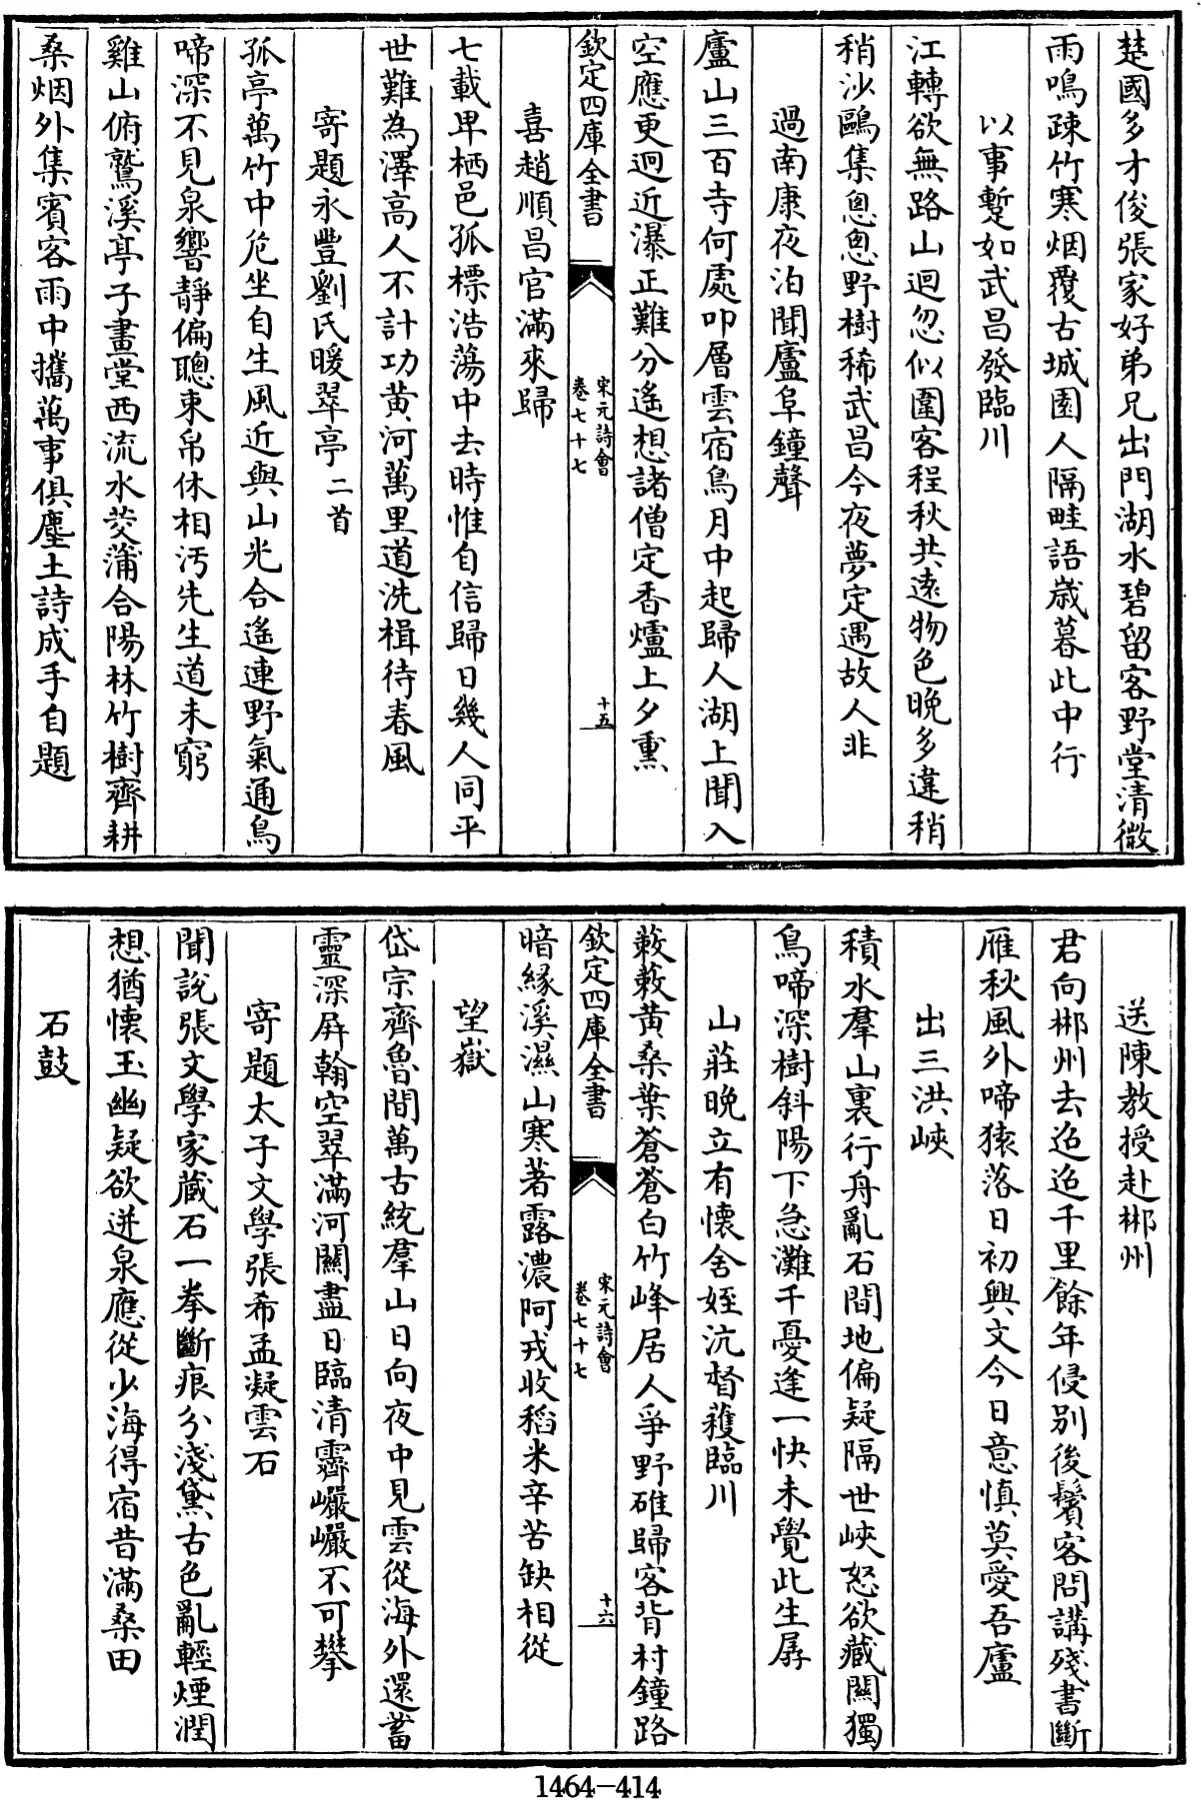 楚國多才俊張家好弟兄出門湖水碧留客野堂清微
雨鳴疎竹寒烟覆古城園人隔畦語歲暮此中行
以事蹔如武昌發臨川
江轉欲無路山迴忽似圍客程秋共逺物色晚多違稍
稍沙鷗集悤悤野樹稀武昌今夜夢定遇故人非
過南康夜泊聞廬阜鐘聲
廬山三百寺何處叩層雲宿鳥月中起歸人湖上聞入
空應更迥近瀑正難分遙想諸僧定香爐上夕熏
欽定四庫全書
宋元詩會
卷七十七
十五
喜趙順昌官滿來歸
七載卑栖邑孤標浩蕩中去時惟自信歸日幾人同平
世難為澤高人不計功黄河萬里道洗楫待春風
寄題永豐劉氏暖翠亭二首
孤亭萬竹中危坐自生風近與山光合遙連野氣通鳥
啼深不見泉響靜偏聰束帛休相汚先生道未窮
雞山俯鷲溪亭子畫堂西流水茭蒲合陽林竹樹齊耕
桑烟外集賓客雨中攜萬事俱塵土詩成手自題
送陳教授赴郴州
君向郴州去迢迢千里餘年侵別後鬢客問講殘書斷
雁秋風外啼猿落日初興文今日意慎莫愛吾廬
出三洪峽
積水羣山裏行舟亂石間地偏疑隔世峽怒欲藏關獨
鳥啼深樹斜陽下急灘千憂逢一快未覺此生孱
山莊晚立有懷舍姪沆督穫臨川
蔌蔌黄桑葉蒼蒼白竹峰居人爭野碓歸客背村鐘路
欽定四庫全書
宋元詩會
卷七十七
十六
暗緣溪濕山寒著露濃阿戎收稻米辛苦缺相從
望嶽
岱宗齊魯間萬古統羣山日向夜中見雲從海外還蓄
靈深屏翰空翠滿河關盡日臨清霽巗巗不可攀
寄題太子文學張希孟凝雲石
聞說張文學家蔵石一拳斷痕分淺黛古色亂輕煙潤
想猶懷玉幽疑欲迸泉應從少海得宿昔滿桑田
石鼓
1464—414